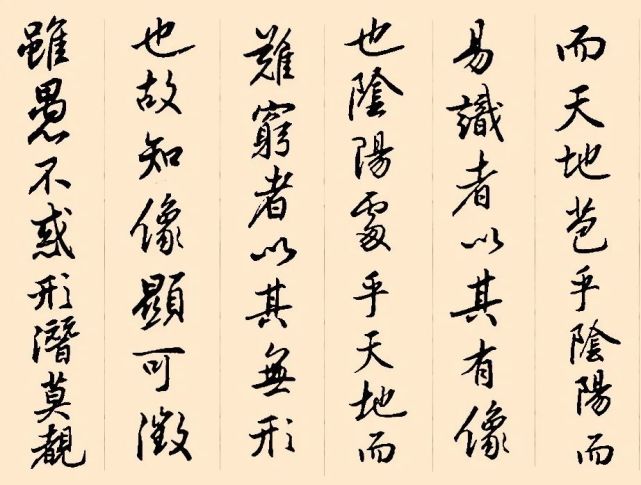 而天地苞乎陰陽而
易識者以其有像
也陰陽處乎天地而
難窮者以其無形
也故知像顯可徵
雖愚不惑形潛莫覩